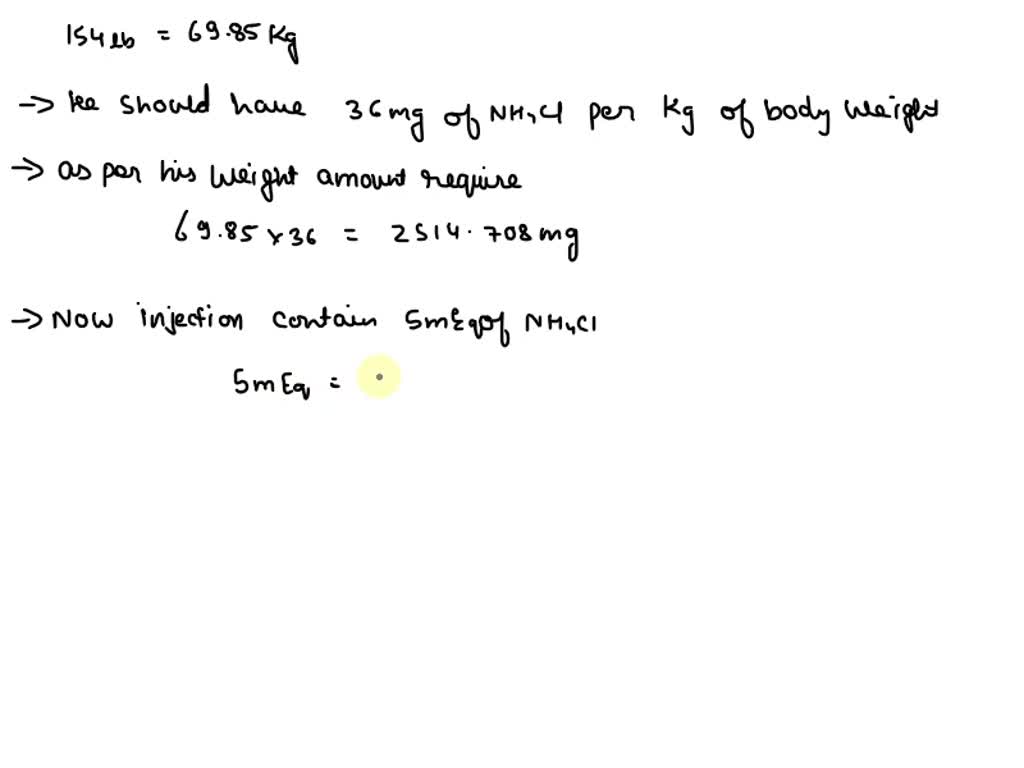 154 lb = 69.85 Kg
→ he should have 36mg of NH4Cl per Kg of body weight
→ as per his weight amount require
69.85 x 36 = 2514.708 mg
→ Now injection contain 5mEq of NH4Cl
5mEq =